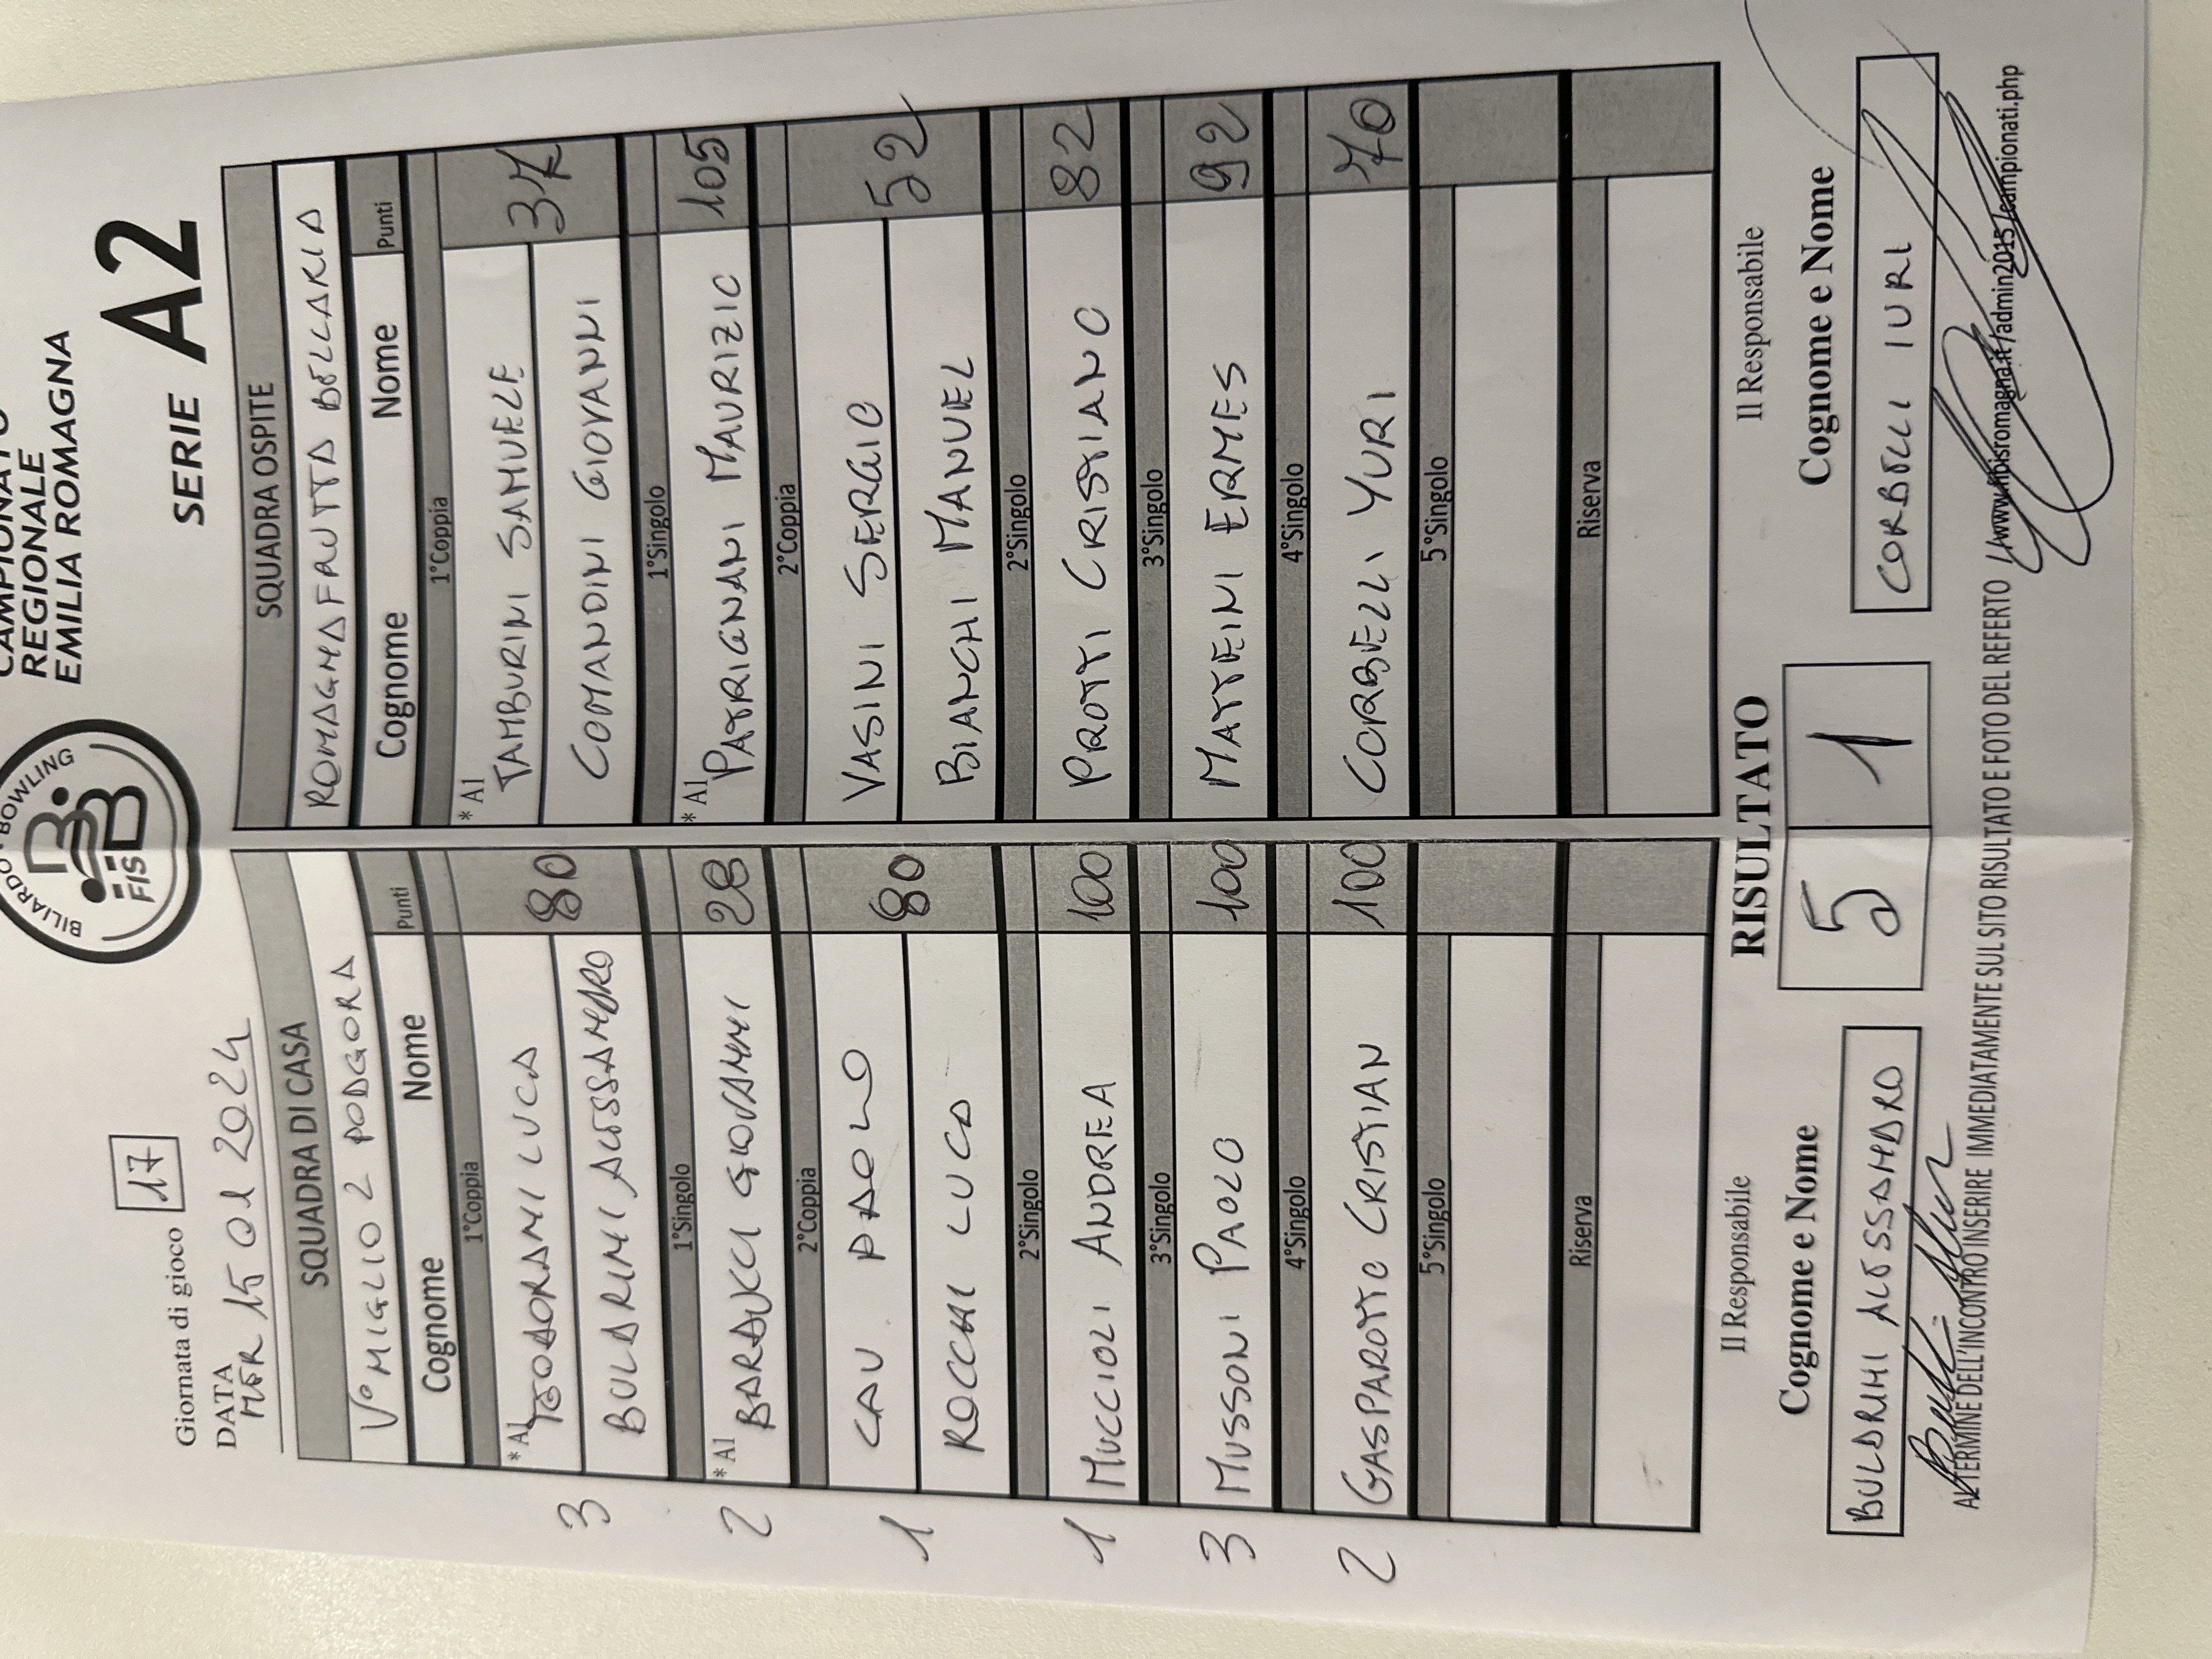 CAMPIONATO
REGIONALE
EMILIA ROMAGNA
BILIARDO BOWLING
FISBB
Giornata di gioco 17
DATA
MER 15 01 2024
SERIE A2
SQUADRA DI CASA
V° MIGLIO 2 PODGORA
Cognome Nome Punti
1°Coppia
3 *A1 TEODORANI LUCA 80
BULDRINI ALESSANDRO
1°Singolo
2 *A1 BARAUCCI GIOVANNI 28
2°Coppia
1 CAU PAOLO 80
ROCCHI LUCA
2°Singolo
1 MUCCIOLI ANDREA 100
3°Singolo
3 MUSSONI PAOLO 100
4°Singolo
2 GASPAROTTO CRISTIAN 100
5°Singolo
Riserva
SQUADRA OSPITE
ROMAGNAFRUTTA BELLARIA
Cognome Nome Punti
1°Coppia
*A1 TAMBURINI SAMUELE 37
COMANDINI GIOVANNI
1°Singolo
*A1 PATRIGNANI MAURIZIO 105
2°Coppia
VASINI SERGIO 52
BIANCHI MANUEL
2°Singolo
PROTTI CRISTIANO 82
3°Singolo
MATTEINI ERMES 92
4°Singolo
CORBELLI YURI 70
5°Singolo
Riserva
Il Responsabile RISULTATO Il Responsabile
Cognome e Nome 5 1 Cognome e Nome
BULDRINI ALESSANDRO CORBELLI IURI
AL TERMINE DELL'INCONTRO INSERIRE IMMEDIATAMENTE SUL SITO RISULTATO E FOTO DEL REFERTO //www.fibisromagna.it/admin2015/campionati.php